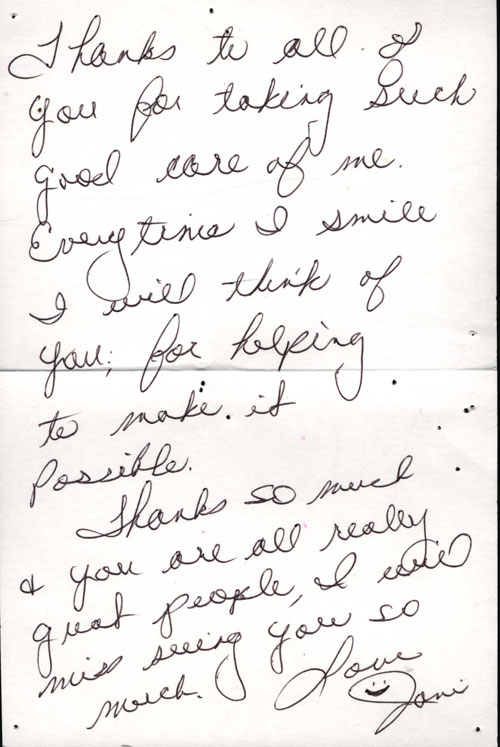 Thanks to all of
you for taking such
good care of me.
Everytime I smile
I will think of
you; for helping
to make it
possible.
Thanks so much
& you are all really
great people, I will
miss seeing you so
much. Love
Joni